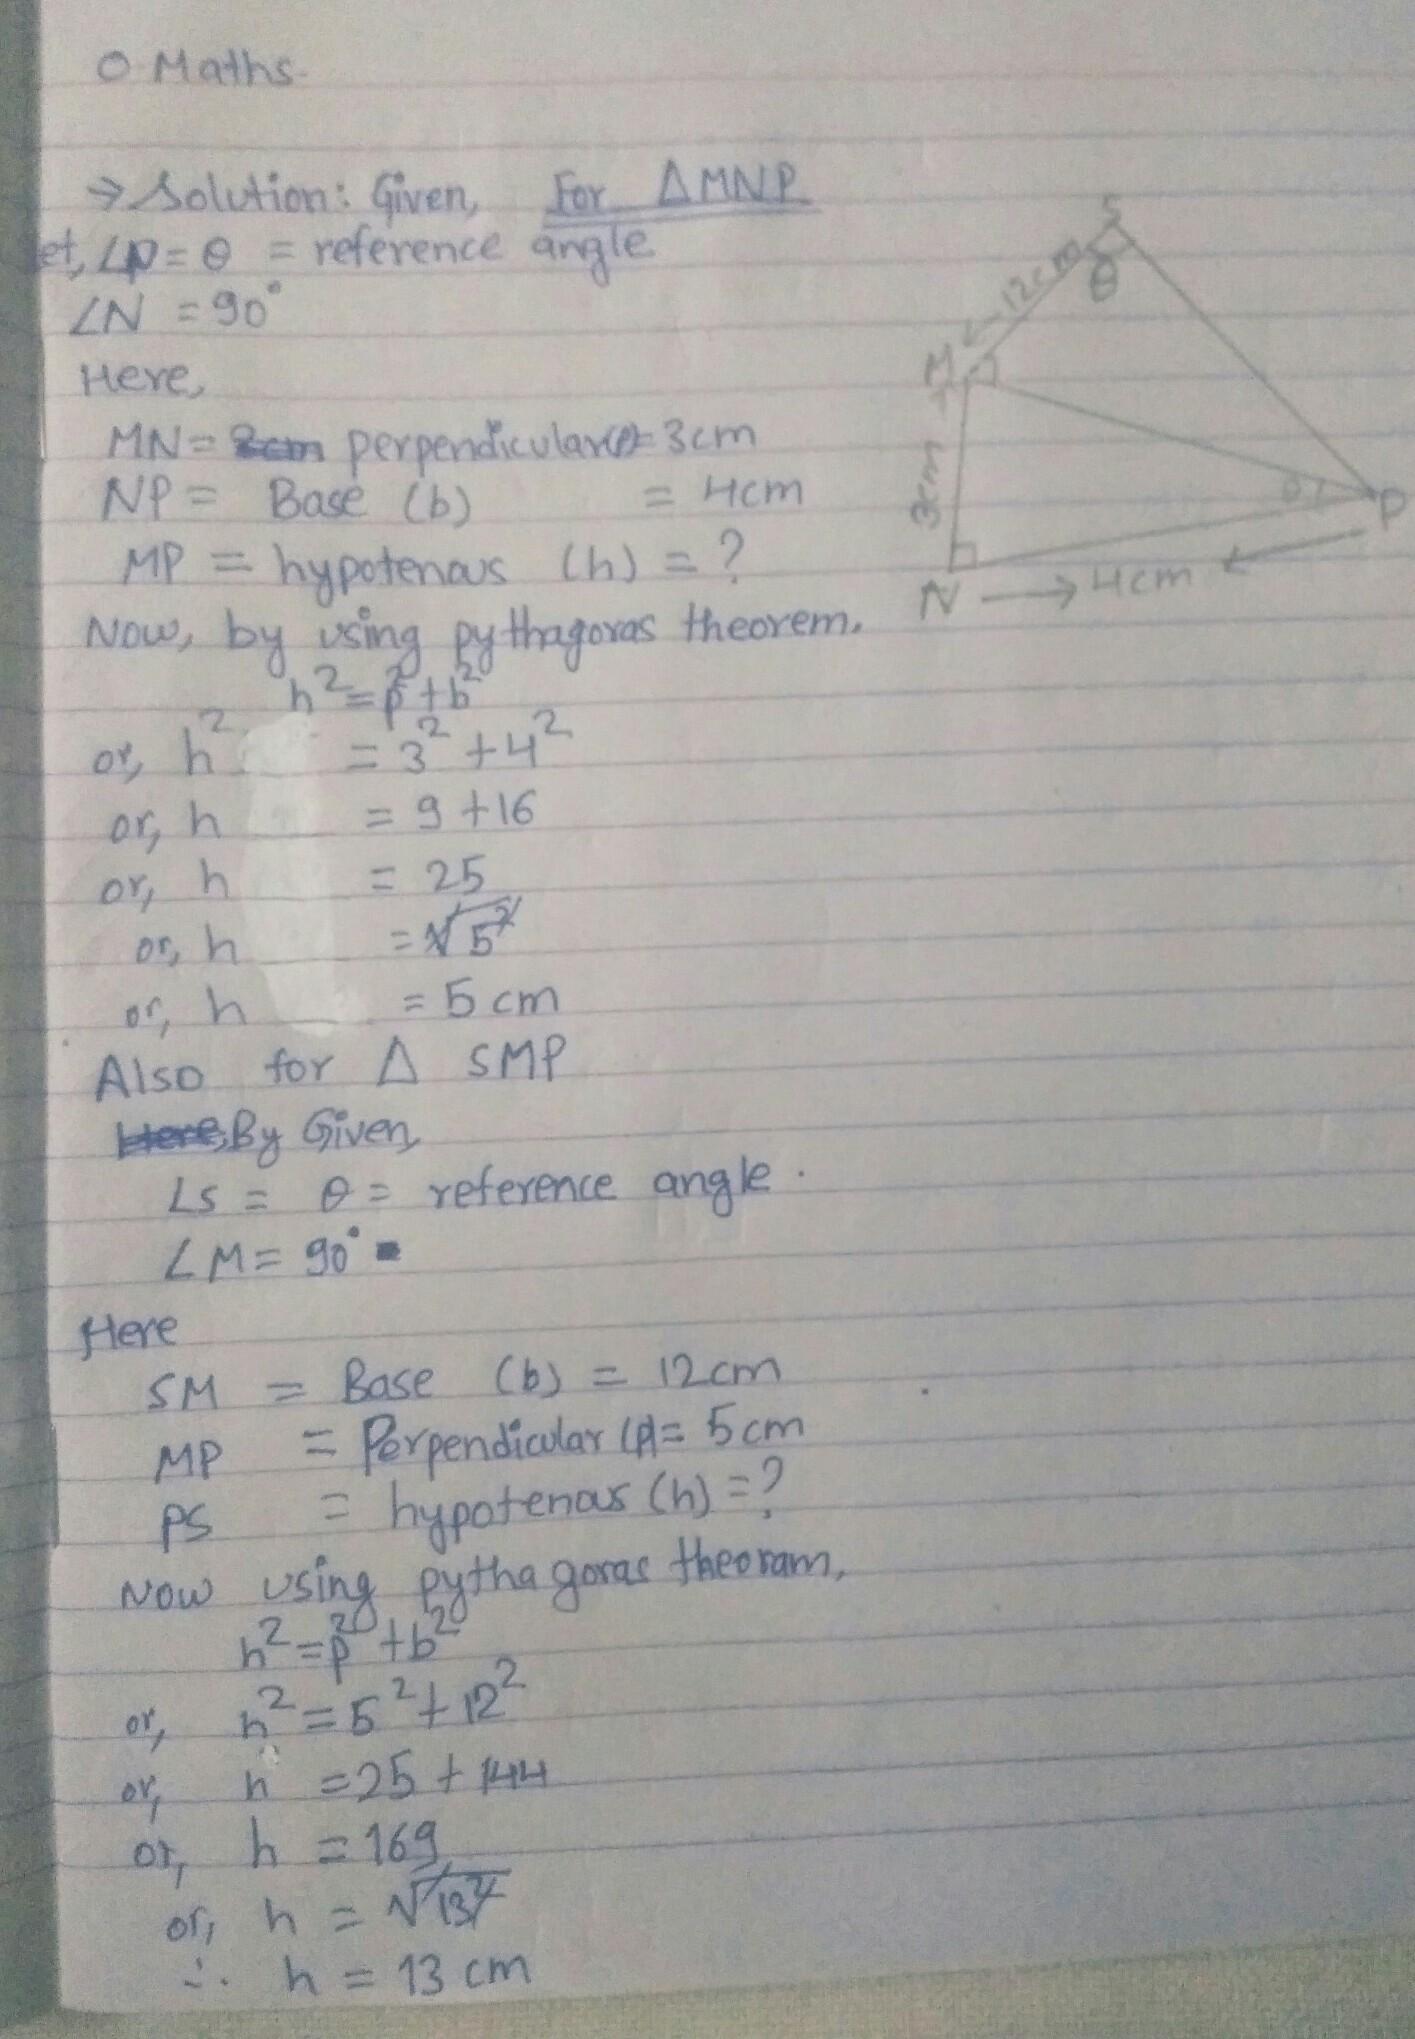 O Maths
→ Solution: Given, For ΔMNP
et, ∠P = θ = reference angle
∠N = 90°
Here,
MN = perpendicular(p) = 3cm
NP = Base (b) = 4cm
MP = hypotenous (h) = ?
Now, by using pythagoras theorem.
h² = p² + b²
or, h² = 3² + 4²
or, h = 9 + 16
or, h = 25
or, h = √5²
or, h = 5 cm
Also for Δ SMP
Here, By Given,
∠S = θ = reference angle.
∠M = 90°
Here
SM = Base (b) = 12cm
MP = Perpendicular (p) = 5cm
PS = hypotenous (h) = ?
Now using pythagoras theoram,
h² = p² + b²
or, h² = 5² + 12²
or, h = 25 + 144
or, h = 169
or, h = √13²
∴ h = 13 cm
S
θ
12cm
M
3cm
θ
P
N
4cm